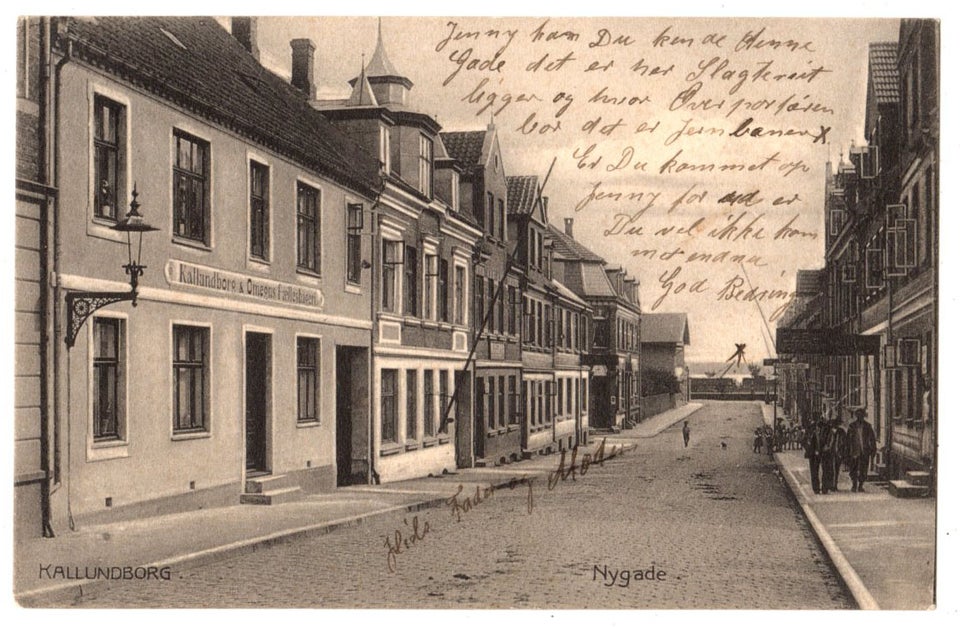 Jenny kan Du kende denne
Gade det er her Slagteriet
ligger og hvor Overportøren
bor det er Jernbanen X
Er Du kommet op
Jenny for ad er
Du vel ikke kom
met endnu
God Bedring
Kallundborg & Omegns Fællesbageri
Hils Fader og Moder
KALLUNDBORG.
Nygade.